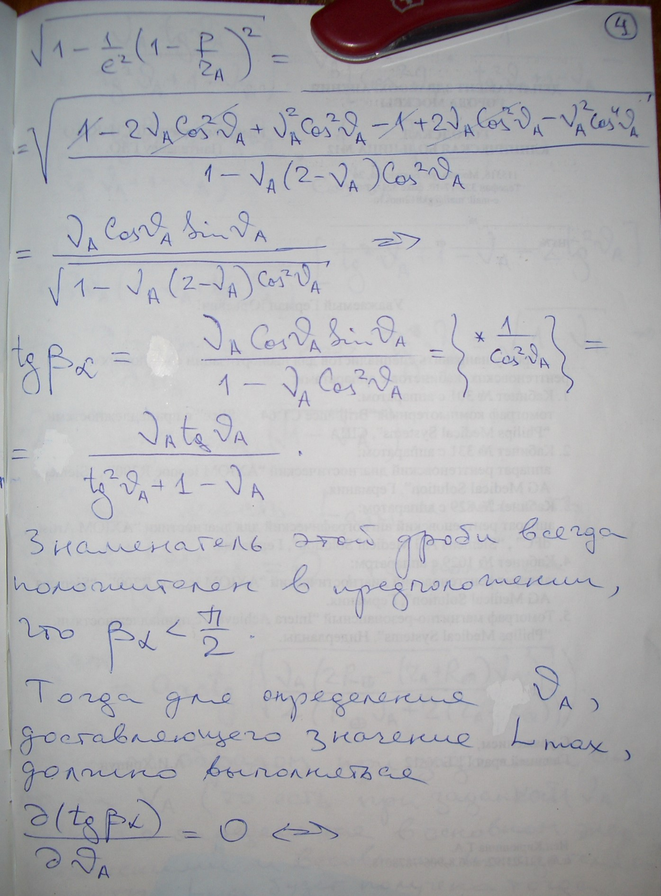 4
√(1 - 1/e² (1 - p/r_A)²) =
= √((1 - 2ν_A Cos²ϑ_A + ν_A² Cos²ϑ_A - 1 + 2ν_A Cos²ϑ_A - ν_A² Cos⁴ϑ_A) / (1 - ν_A (2 - ν_A) Cos²ϑ_A))
= (ν_A Cosϑ_A Sinϑ_A) / √(1 - ν_A (2 - ν_A) Cos²ϑ_A) ⇒
tg β_α = (ν_A Cosϑ_A Sinϑ_A) / (1 - ν_A Cos²ϑ_A) = { * 1/Cos²ϑ_A } =
= (ν_A tg ϑ_A) / (tg²ϑ_A + 1 - ν_A) .
Знаменатель этой дроби всегда
положителен в предположении,
что β_α < π/2 .
Тогда для определения ϑ_A,
доставляющего значение L max,
должно выполняться
∂(tg β_α) / ∂ϑ_A = 0 ⇔